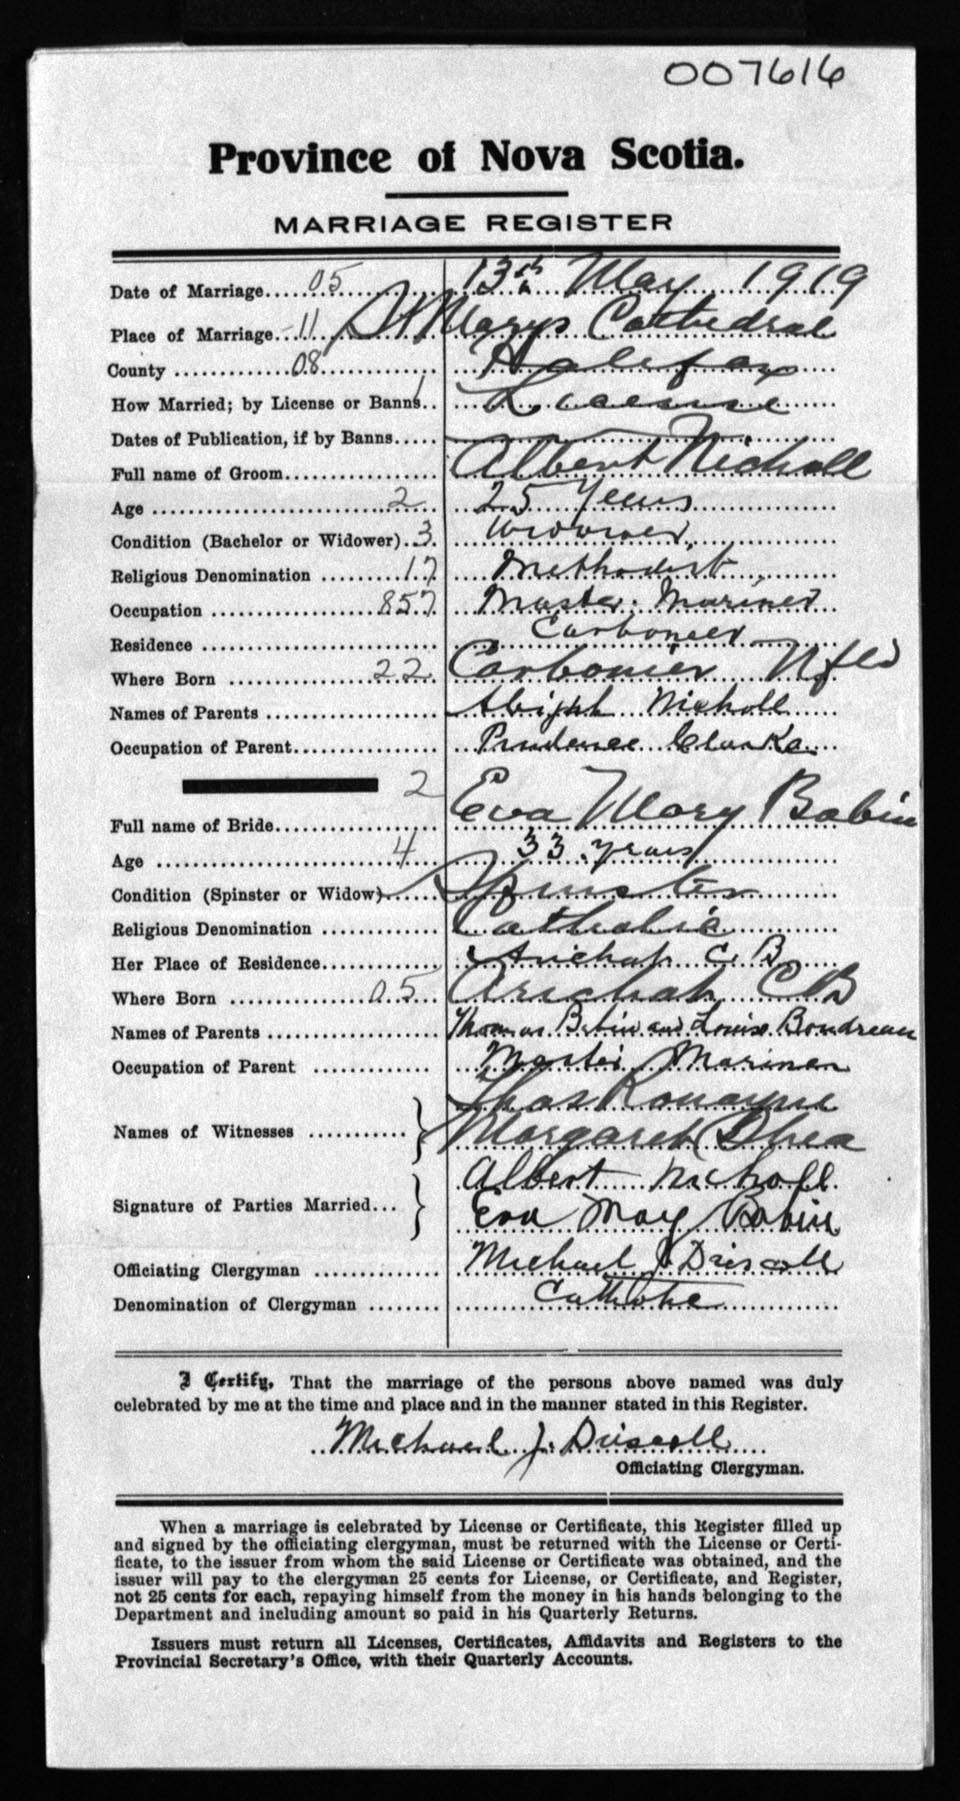 007616
Province of Nova Scotia.
MARRIAGE REGISTER
Date of Marriage..... 05 13th May 1919
Place of Marriage.. 11 St Marys Cathedral
County ............ 08 Halifax
How Married; by License or Banns.. 1 License
Dates of Publication, if by Banns.....
Full name of Groom................ Albert Nicholl
Age ........................ 2 25 Years
Condition (Bachelor or Widower).. 3 Widower
Religious Denomination ........ 17 Methodist
Occupation ................ 857 Master Mariner
Residence ........................ Carboneer
Where Born ................ 22 Carbonier Nfld
Names of Parents ................. Nicholl
Occupation of Parent.............. Prudence Clarke
2
Full name of Bride................ Eva Mary Babin
Age ........................ 4 33 years
Condition (Spinster or Widow)..... Spinster
Religious Denomination ............ Catholic
Her Place of Residence............ Arichat C B
Where Born ................ 05 Arichat C B
Names of Parents ................. Thomas Babin and Louise Boudreau
Occupation of Parent ............. Master Mariner
Thos Ronayne
Names of Witnesses ...........
Margaret Shea
Albert Nicholl
Signature of Parties Married...
Eva May Babin
Officiating Clergyman ............. Michael J Driscoll
Denomination of Clergyman ........ Catholic
I Certify, That the marriage of the persons above named was duly
celebrated by me at the time and place and in the manner stated in this Register.
Michael J. Driscoll
Officiating Clergyman.
When a marriage is celebrated by License or Certificate, this Register filled up
and signed by the officiating clergyman, must be returned with the License or Certi-
ficate, to the issuer from whom the said License or Certificate was obtained, and the
issuer will pay to the clergyman 25 cents for License, or Certificate, and Register,
not 25 cents for each, repaying himself from the money in his hands belonging to the
Department and including amount so paid in his Quarterly Returns.
Issuers must return all Licenses, Certificates, Affidavits and Registers to the
Provincial Secretary's Office, with their Quarterly Accounts.